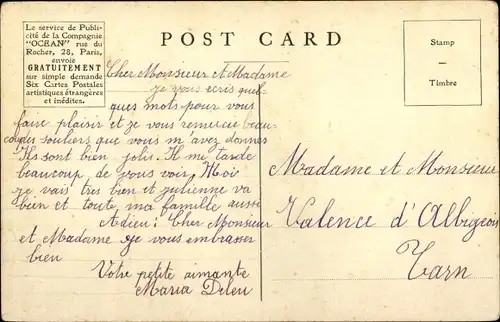 Le service de Publi-
cité de la Compagnie
"OCEAN" rue du
Rocher, 28, Paris,
envoie
GRATUITEMENT
sur simple demande
Six Cartes Postales
artistiques étrangères
et inédites.
POST CARD
Stamp
—
Timbre
Cher Monsieur et Madame
je vous écris quel-
ques mots pour vous
faire plaisir et je vous remercie beau-
coup des souliers que vous m'avez donnes
Ils sont bien jolis. Il me tarde
beaucoup de vous voir, Moi
je vais tres bien et julienne va
bien et toute ma famille aussi
Adieu: Cher Monsieur
et Madame je vous embrasser
bien
Votre petite aimante
Maria Deleu
Madame et Monsieur
Valence d'Albigeois
Tarn